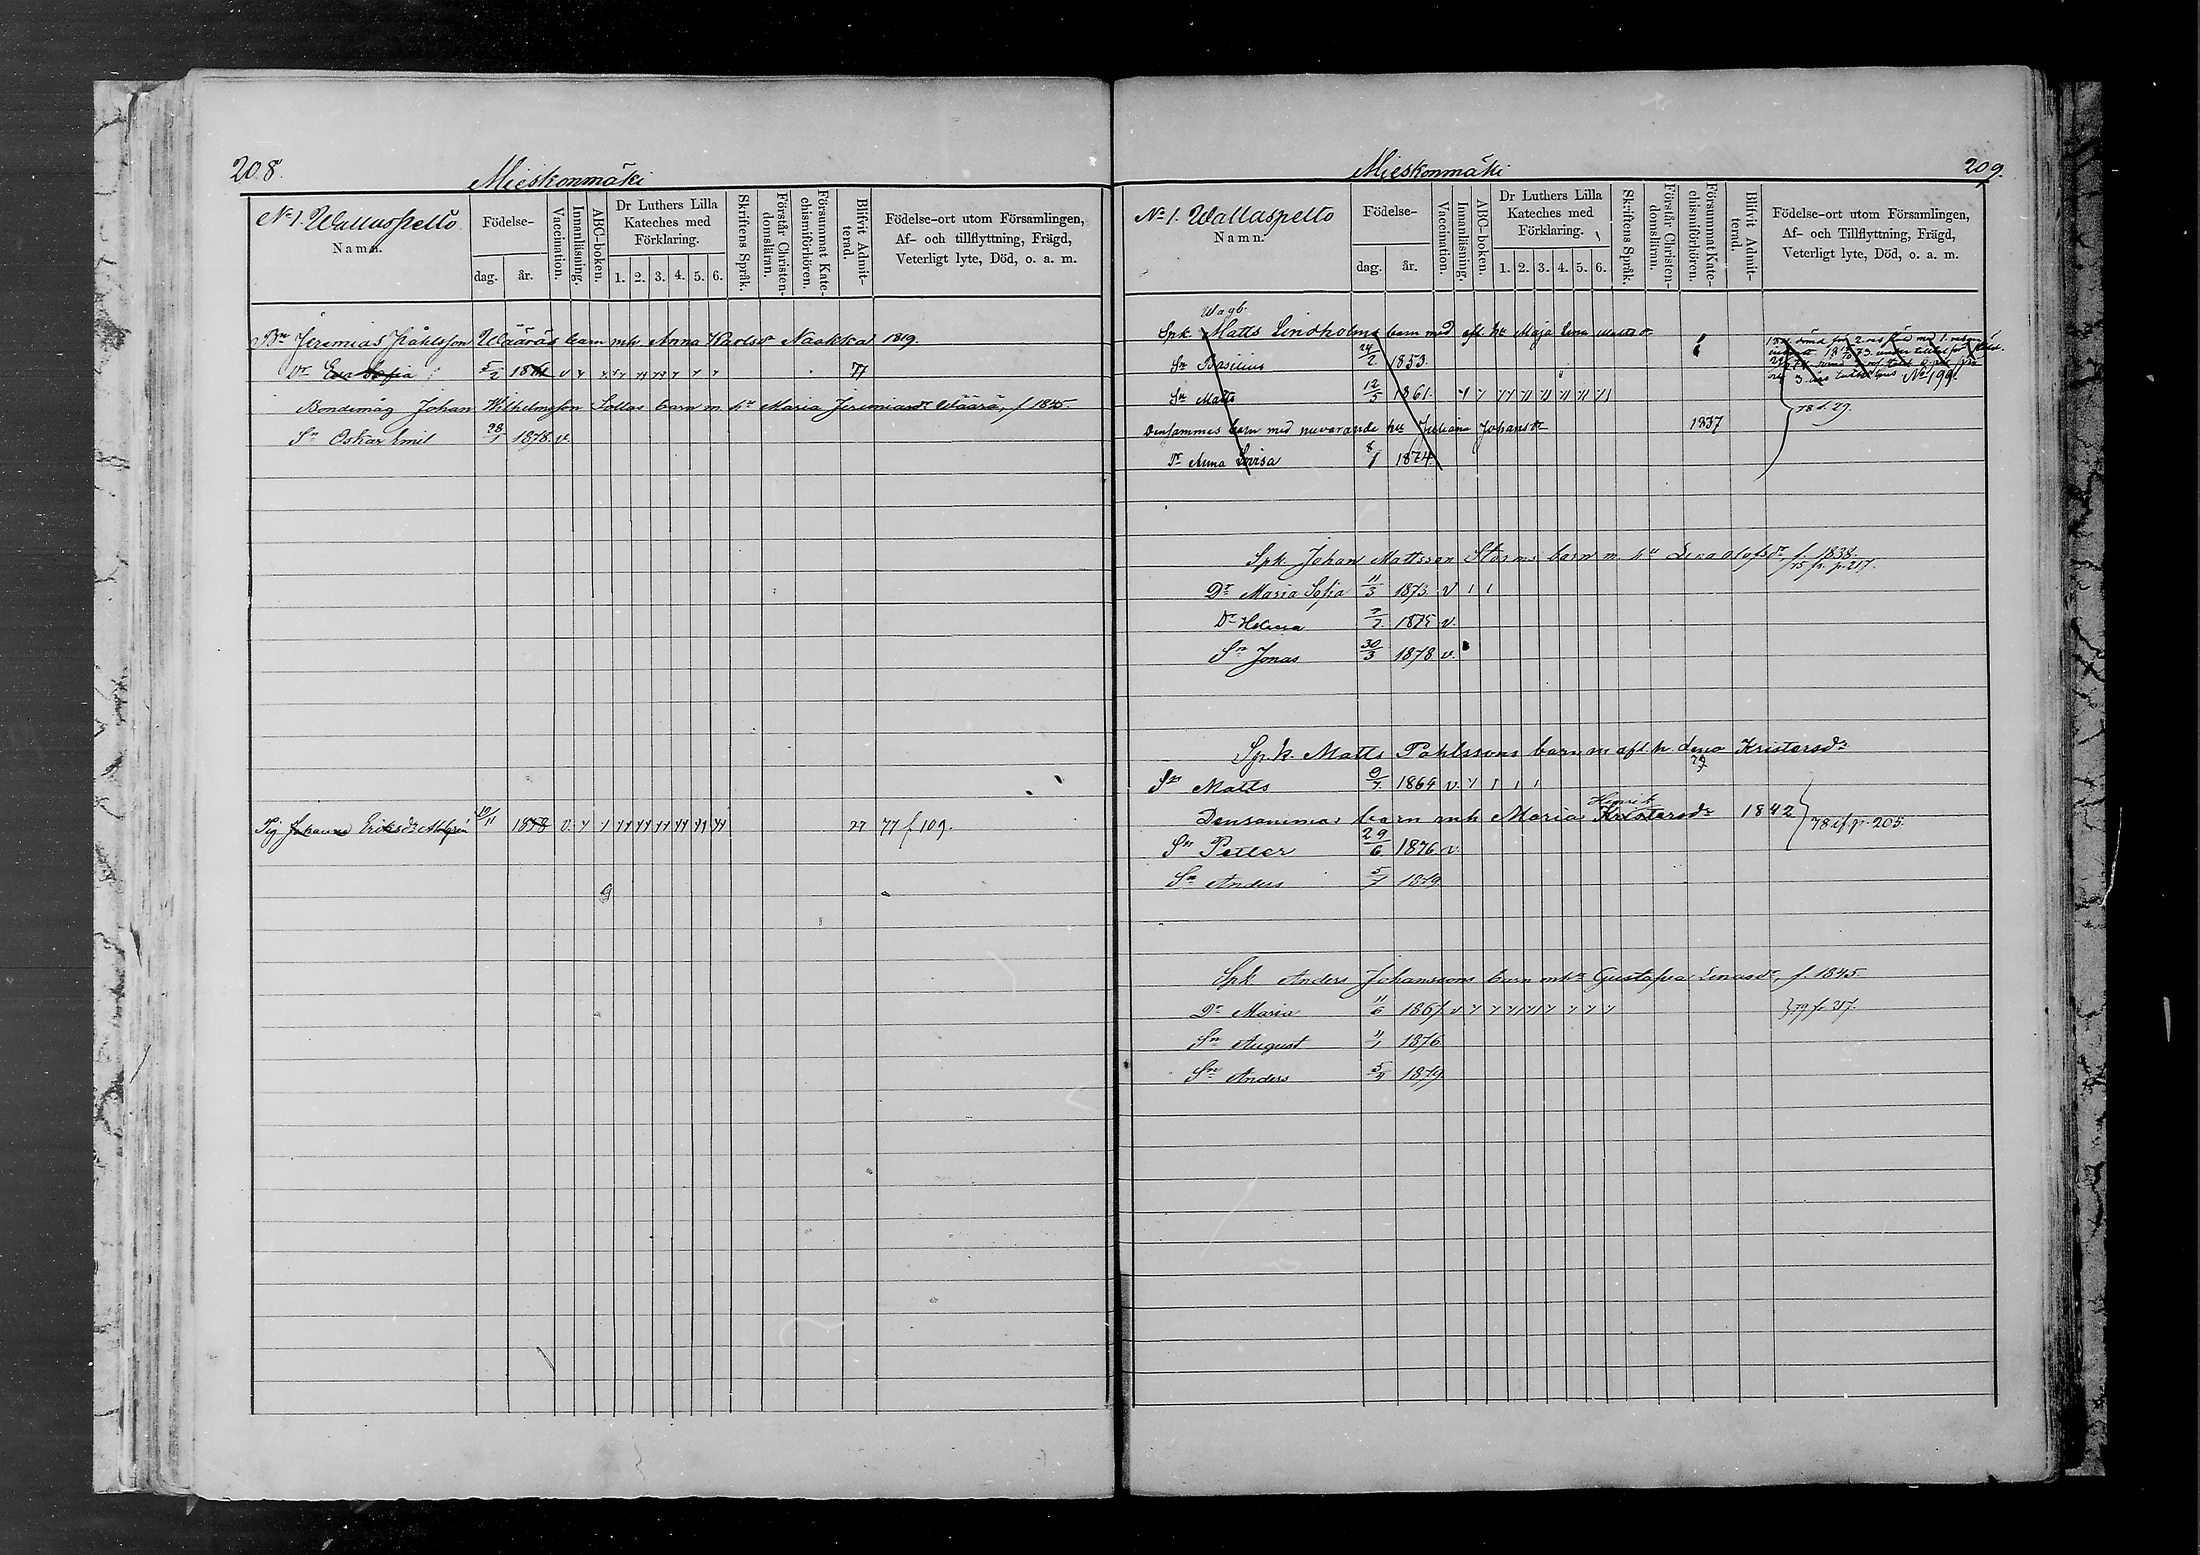 208.
Mieskonmäki
No 1. Wallaspelto
Namn.
Födelse-
dag.
år.
Vaccination.
Innanläsning.
ABC-boken.
Dr Luthers Lilla
Kateches med
Förklaring.
1. 2. 3. 4. 5. 6.
Skriftens Språk.
Förstår Christen-
domsläran.
Försummat Kate-
chismiförhören.
Blifvit Admit-
terad.
Födelse-ort utom Församlingen,
Af- och tillflyttning, Frägd,
Veterligt lyte, Död, o. a. m.
Bn Jeremias Påhlsson Wääräs barn mh. Anna Karlsdr Naakka 1819.
Dr Eva Sofia 5/2 1861 v 77
Bondemåg Johan Wilhelmsson Sollas barn m. hu Maria Jeremiasdr Wäärä, f. 1845.
Sn Oskar Emil 28/1 1878. v.
Pig Johanna Eriksdr Ahlgrén 10/11 1858 v. 77 77 f 109.
209.
Mieskonmäki
No 1. Wallaspelto
Namn.
Födelse-
dag.
år.
Vaccination.
Innanläsning.
ABC-boken.
Dr Luthers Lilla
Kateches med
Förklaring.
1. 2. 3. 4. 5. 6.
Skriftens Språk.
Förstår Christen-
domsläran.
Försummat Kate-
chismiförhören.
Blifvit Admit-
terad.
Födelse-ort utom Församlingen,
Af- och Tillflyttning, Frägd,
Veterligt lyte, Död, o. a. m.
Wagb.
Spk. Matts Lindholms barn med afl. hu Maja Lena Mattsdr
Sn Basilius 24/2 1853.
Sn Matts 12/5 1861.
Densammes barn med nuvarande hu Juliana Johansdr 1837
Dr Anna Lovisa 8/1 1874.
78 f. 29.
Spk. Johan Mattsson Storms barn m. hu Lena Olofsdr f. 1838.
75 fr. p. 217.
Dr Maria Sofia 11/3 1873. v
Dr Helena 7/7 1875 v.
Sn Jonas 30/3 1878 v.
Spk. Matts Pahlssons barn m afl. h. Lena Kristersdr
Sn Matts 9/7 1864 v.
Henrik
Densammes barn mh Maria Kristersdr 1842
78 if p. 205.
Sn Petter 29/6 1876 v.
Sn Anders 5/7 1879
Spk Anders Johanssons barn mhu Gustafva Enasdr, f. 1845
Dr Maria 11/6 1867 v
79 fr. 217.
Sn August 11/1 1876
Sn Anders 5/7 1879